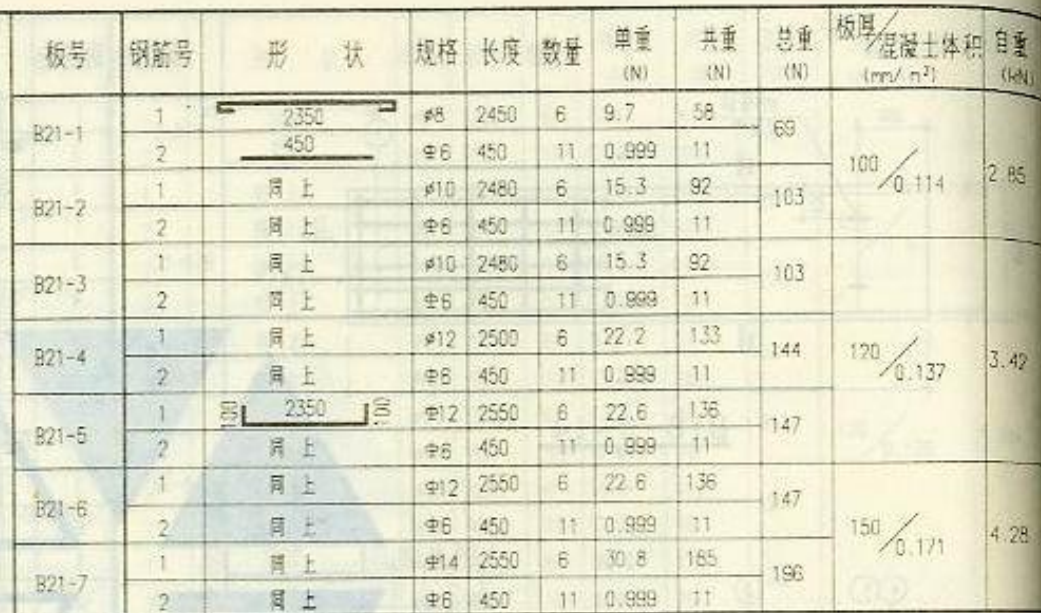 板号 钢筋号 形 状 规格 长度 数量 单重 (N) 共重 (N) 总重 (N) 板厚/混凝土体积 (mm/m³) 自重 (kN)
B21-1 1 2350 φ8 2450 6 9.7 58 69 100/0.114 2.85
2 450 Φ6 450 11 0.999 11
B21-2 1 同上 φ10 2480 6 15.3 92 103
2 同上 Φ6 450 11 0.999 11
B21-3 1 同上 φ10 2480 6 15.3 92 103 120/0.137 3.42
2 同上 Φ6 450 11 0.999 11
B21-4 1 同上 φ12 2500 6 22.2 133 144
2 同上 Φ6 450 11 0.999 11
B21-5 1 100 2350 100 Φ12 2550 6 22.6 136 147
2 同上 Φ6 450 11 0.999 11
B21-6 1 同上 Φ12 2550 6 22.6 136 147 150/0.171 4.28
2 同上 Φ6 450 11 0.999 11
B21-7 1 同上 Φ14 2550 6 30.8 185 196
2 同上 Φ6 450 11 0.999 11